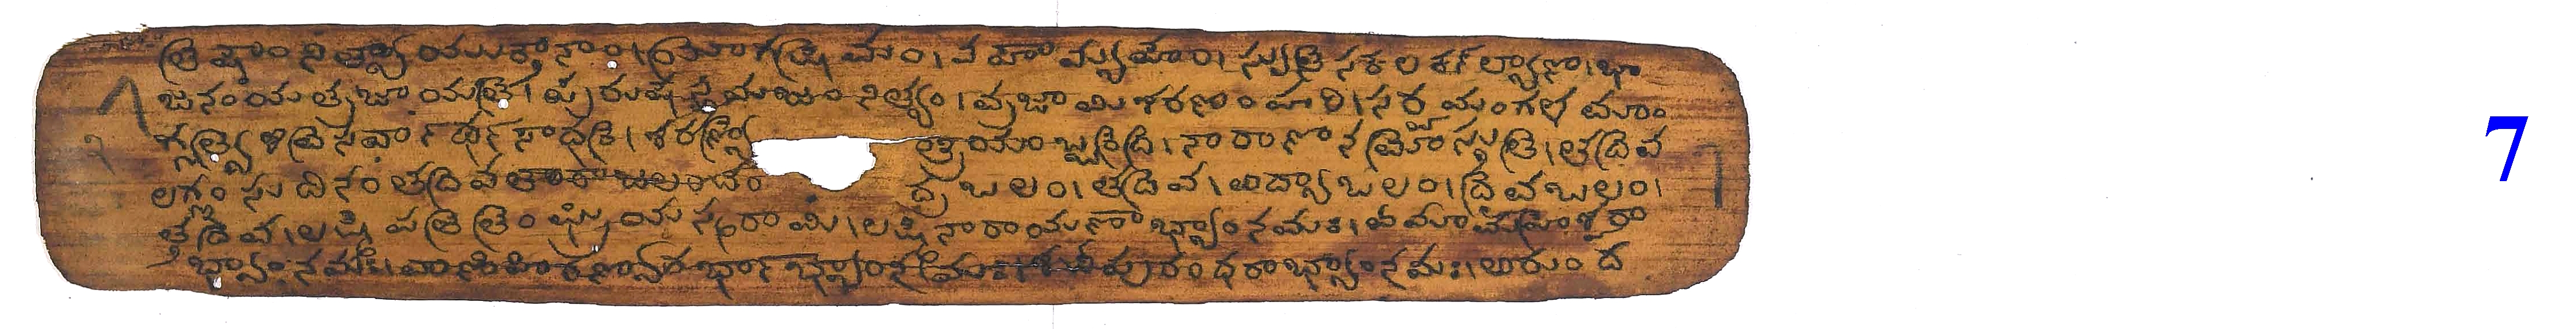 తేషాం నిత్యాభియుక్తానాం। యోగక్షేమం। వహామ్యహం। స్మృతే సకల కల్యాణ। భా
జనం యత్ర జాయతే। పురుషస్తమజం నిత్యం। వ్రజామి శరణం హరిం। సర్వమంగళ మాం
గల్యే శివే సర్వార్థ సాధకే। శరణ్యే త్ర్యంబకే దేవి। నారాయణి నమోస్తుతే। తదేవ
లగ్నం సుదినం తదేవ తారాబలం చం ద్రబలం। తదేవ। విద్యాబలం। దైవబలం।
తదేవ। లక్ష్మీపతే తేంఘ్రియుగం స్మరామి। లక్ష్మీనారాయణాభ్యాం నమః। ఉమామహేశ్వరా
భ్యాం నమః। వాణీహిరణ్యగర్భాభ్యాం నమః। శచీపురందరాభ్యాం నమః। అరుంధ
7